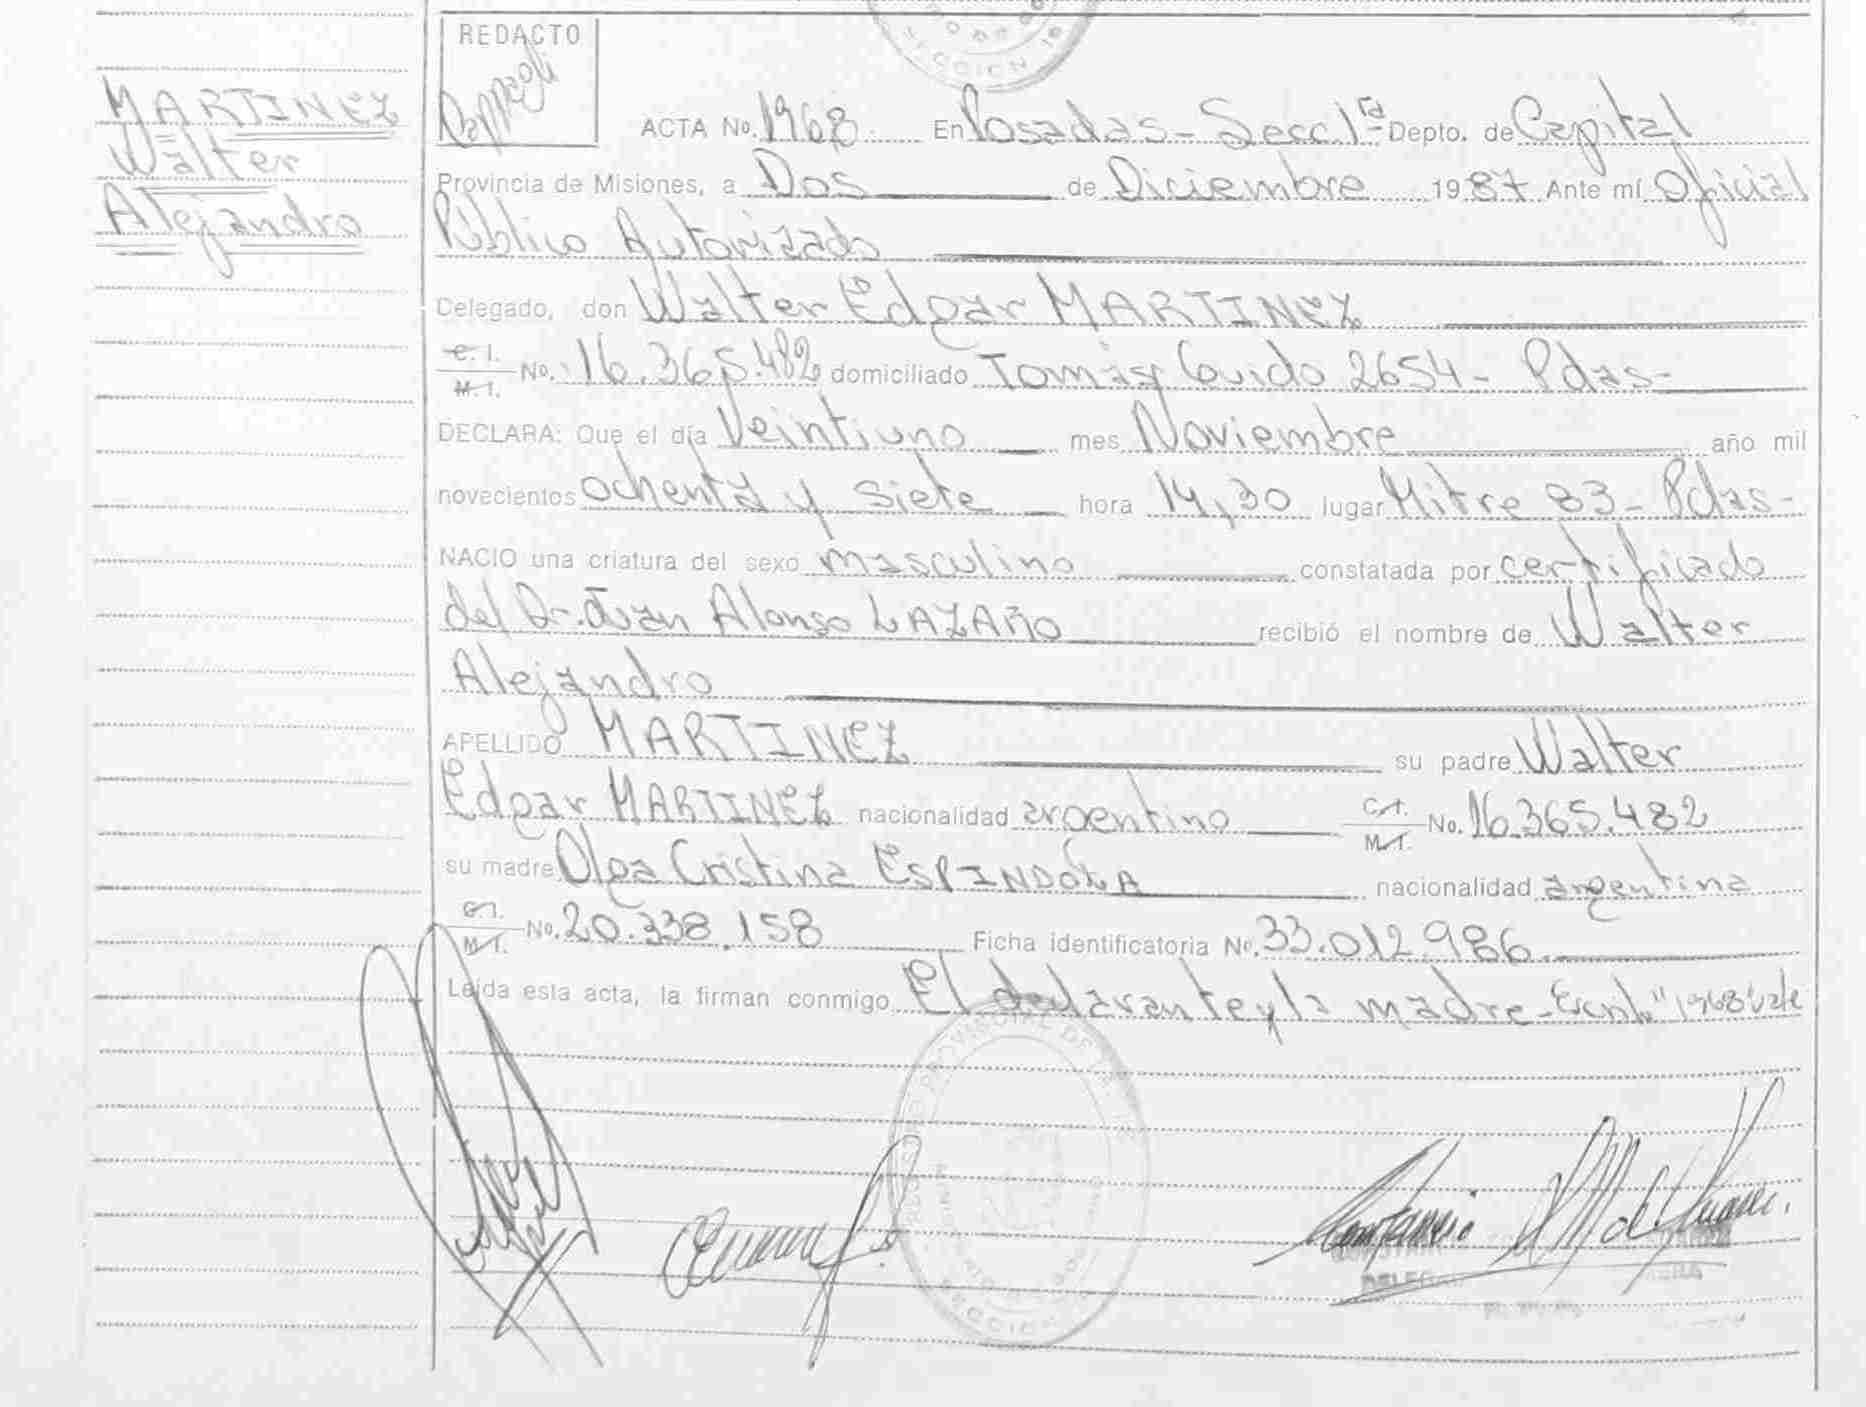 MARTINEZ
Walter
Alejandro
REDACTO
ACTA No. 1968 En Posadas - Secc. 1ª - Depto. de Capital
Provincia de Misiones, a Dos de Diciembre 1987 Ante mí Oficial
Público Autorizado
Delegado, don Walter Edgar MARTINEZ
C. I. M. I. No. 16.365.482 domiciliado Tomás Guido 2654 - Pdas -
DECLARA: Que el día Veintiuno mes Noviembre año mil
novecientos ochenta y siete hora 14,30 lugar Mitre 83 - Pdas -
NACIO una criatura del sexo masculino constatada por certificado
del Dr. Juan Alonso LAZAÑO recibió el nombre de Walter
Alejandro
APELLIDO MARTINEZ su padre Walter
Edgar MARTINEZ nacionalidad argentino C.I. M.I. No. 16.365.482
su madre Olga Cristina ESPINDOLA nacionalidad argentina
C.I. M.I. No. 20.338.158 Ficha identificatoria No. 33.012.986
Leída esta acta, la firman conmigo El declarante y la madre - "1968" vale